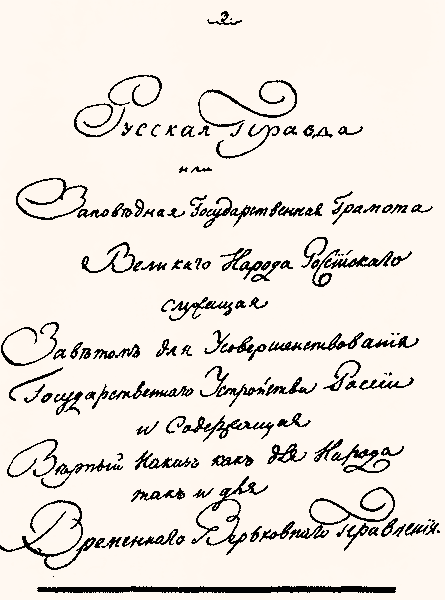 2
Русская Правда
или
Заповѣдная Государственная Грамота
Великаго Народа Россійскаго
служащая
Завѣтомъ для Усовершенствованія
Государственнаго Устройства Россіи
и Содержащая
Вѣрный Наказъ какъ для Народа
такъ и для
Временнаго Верьховнаго Правленія.